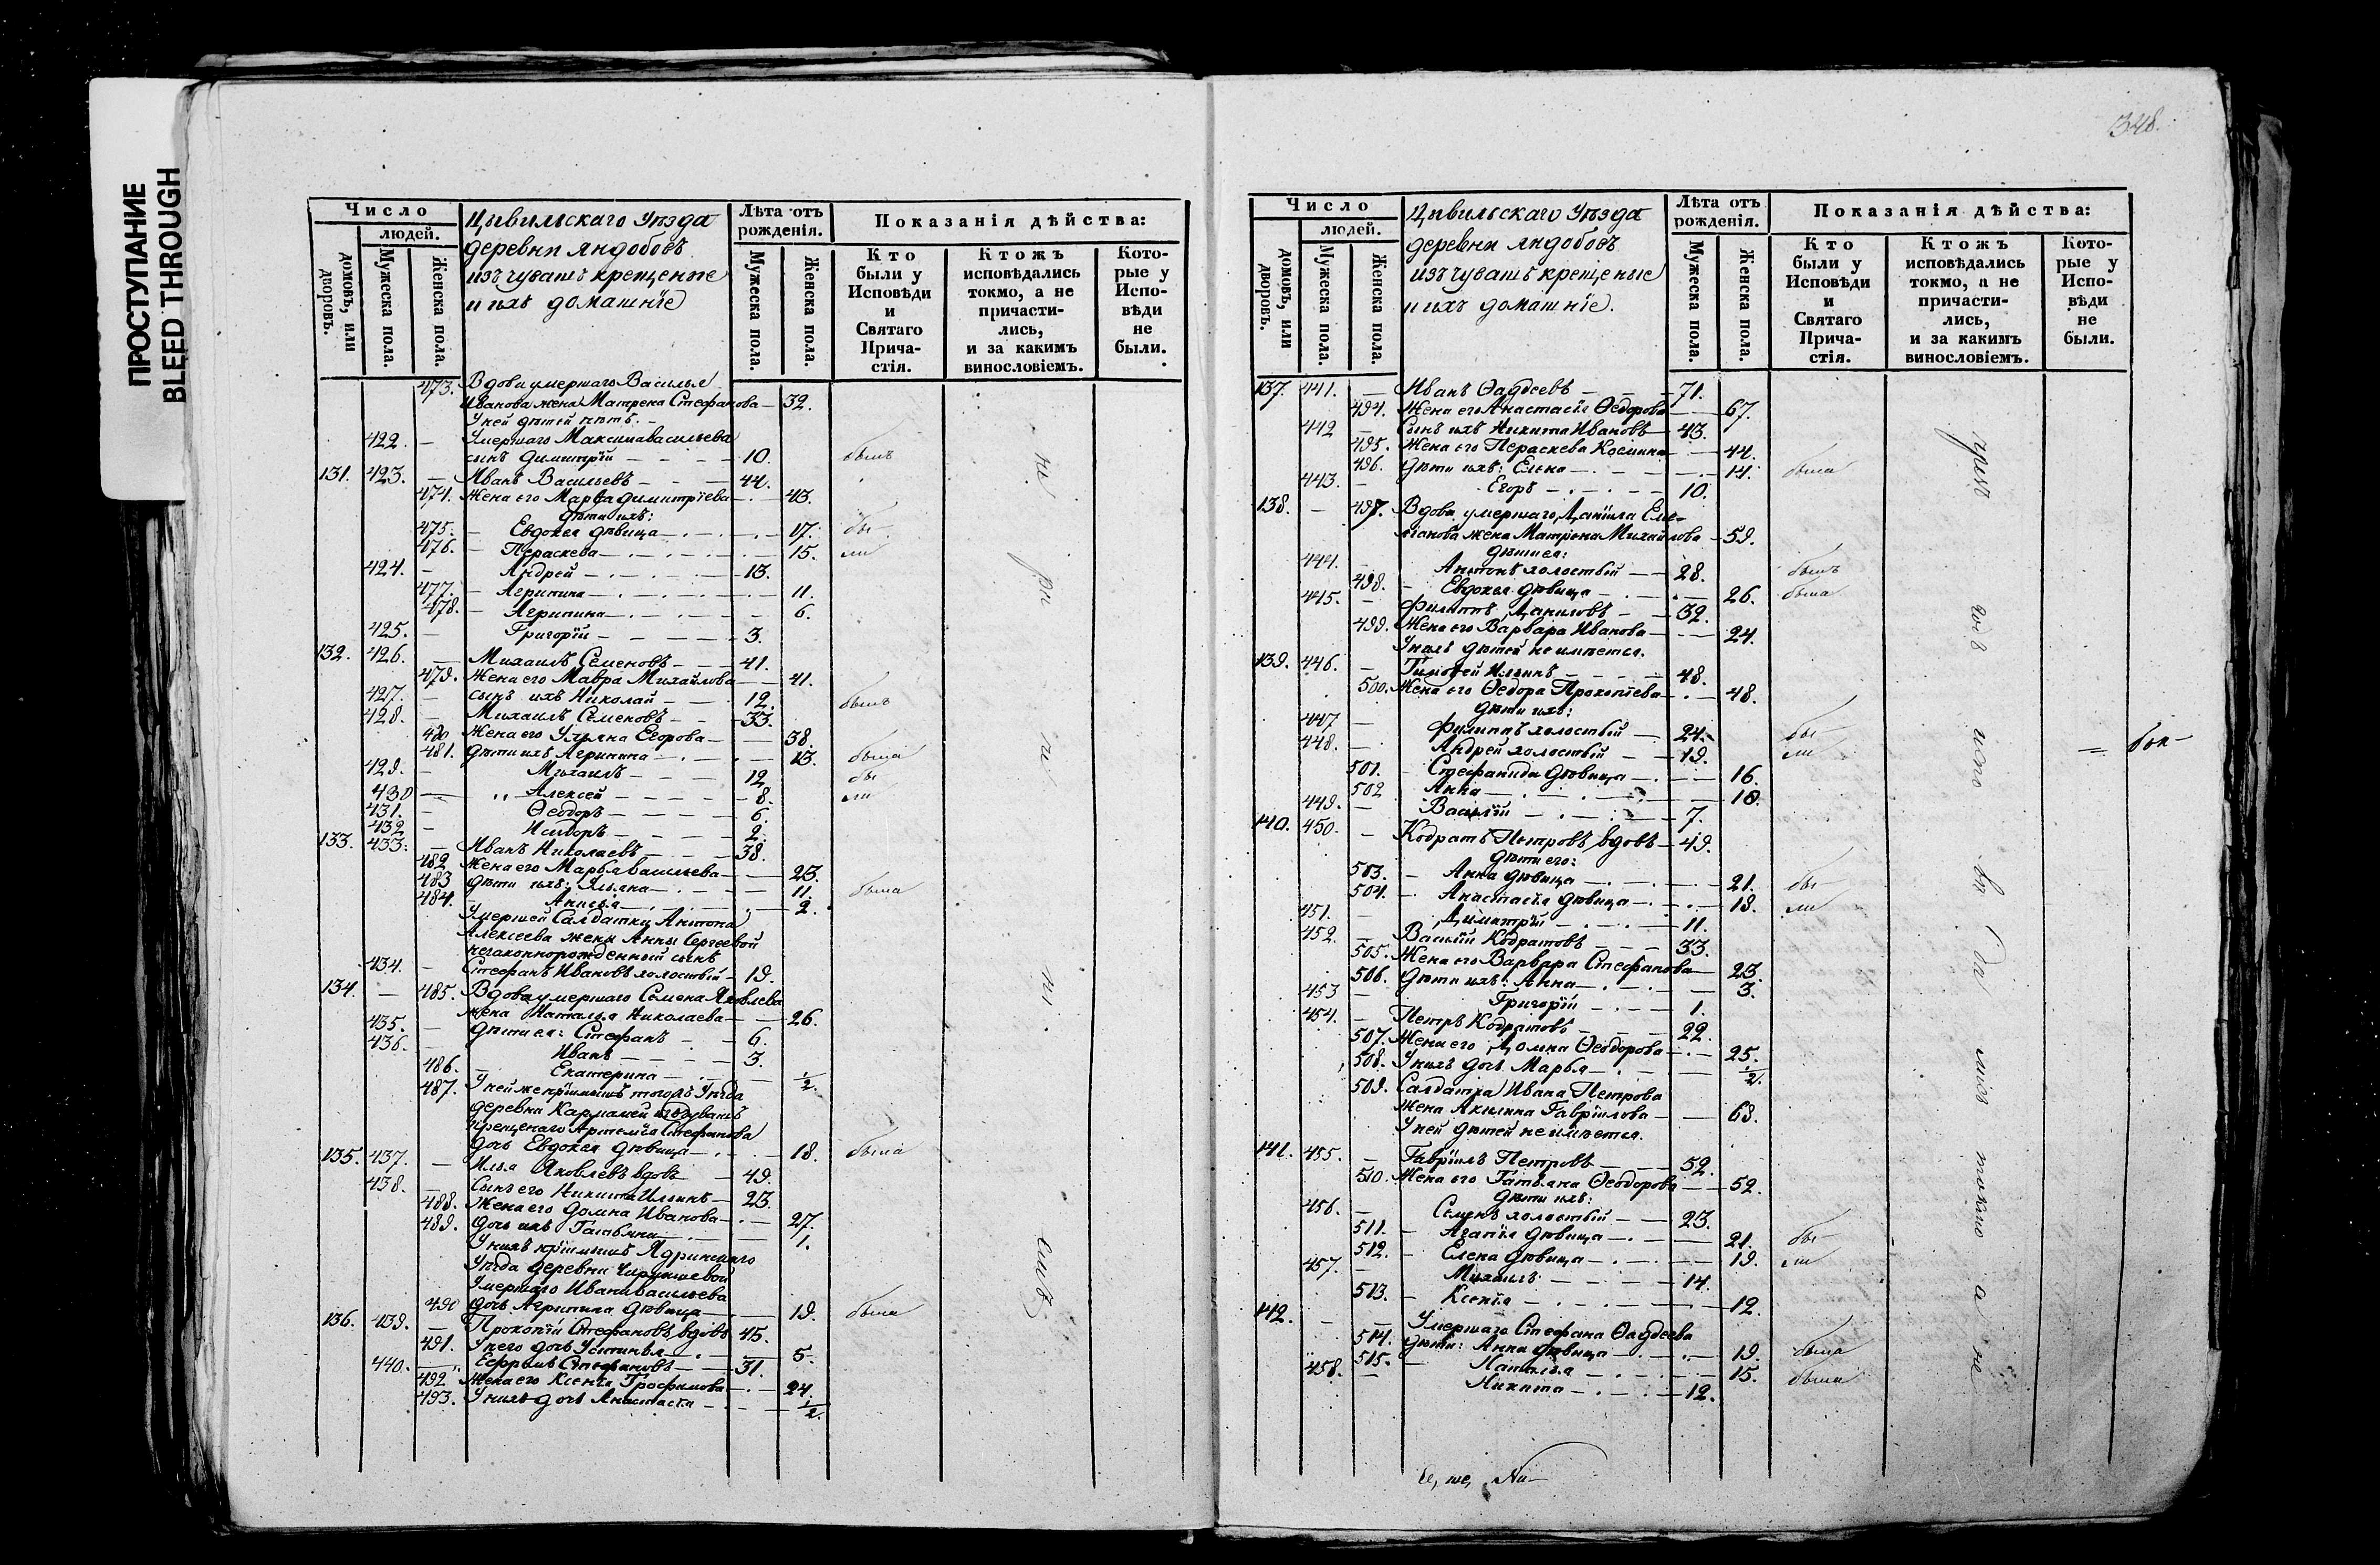 ПРОСТУПАНИЕ
BLEED THROUGH
Число
людей.
домовъ, или дворовъ.
Мужеска пола.
Женска пола.
Цывильскаго Уѣзда
деревни Яндобовъ
изъ чувашъ крещенные
и ихъ домашніе
Лѣта отъ рожденія.
Мужеска пола.
Женска пола.
Показанія дѣйства:
Кто были у Исповѣди и Святаго Причастія.
Ктожъ исповѣдались токмо, а не причастились, и за какимъ винословіемъ.
Которые у Исповѣди не были.
473. Вдова умершаго Василья
Иванова жена Матрена Стефанова — 32.
У ней дѣтей нѣтъ. —
422. — Умершаго Максима Васильева
сынъ Димитрій — — — 10. былъ
131. 423. — Иванъ Васильевъ — — — 44.
474. Жена его Марѳа Димитріева — 43.
Дѣти ихъ:
475. — Евдокея дѣвица — 17. бы-
476. — Параскева — 15. ли
424. — Андрей — 13.
477. — Агрипина — 11.
478. — Агрипина — 6.
425. — Григорій — 3.
132. 426. — Михаилъ Семеновъ — 41.
479. Жена его Мавра Михайлова — 41.
427. — сынъ ихъ Николай — 12. былъ
428. — Михаилъ Семеновъ — 33.
480 Жена его Ульяна Егорова — 38.
481. Дѣти ихъ Агрипина — 13. была
429. — Михаилъ — 12 бы
430 — „ Алексей — 8. ли
431. — Ѳеодоръ — 6.
432 — Исидоръ — 2.
133. 433. — Иванъ Николаевъ — 38.
482 Жена его Марья Васильева — 23.
483 Дѣти ихъ: Ульяна — 11. была
484. Анисья — 2.
Умершей Салдатки Антона
Алексеева жены Анны Сергеевой
незаконнорожденный сынъ
434. — Стефанъ Ивановъ холостый — 19.
134. — 485. Вдова умершаго Семена Яковлева
жена Наталья Николаева — 26.
435. — Дѣти ея: Стефанъ — 6.
436. — Иванъ — 3.
486. — Екатерина — 1/2.
487. У ней же пріимышъ тогожъ Уѣзда
деревни Кармамей изъ чувашъ
крещенаго Артемія Стефанова
дочь Евдокея дѣвица — 18. была
135. 437. — Илья Яковлевъ вдовъ — 49.
438. — Сынъ его Никита Ильинъ — 23.
488. Жена его Домна Иванова — 27.
489. дочь ихъ Татьяна — 1.
У нихъ пріимышъ Ядринскаго
Уѣзда деревни
Умершаго Ивана Васильева
490 дочь Агрипина дѣвица — 19. была
136. 439. — Прокопій Стефановъ, вдовъ 45.
491. У него дочь Устинья — 5.
440. — Ефремъ Стефановъ — 31.
492 Жена его Ксенія Трофимова — 24.
493. У нихъ дочь Анастасія — 1/2.
348.
Число
людей.
домовъ, или дворовъ.
Мужеска пола.
Женска пола.
Цивильскаго Уѣзда
деревни Яндобовъ
изъ чувашъ крещеные
и ихъ домашніе.
Лѣта отъ рожденія.
Мужеска пола.
Женска пола.
Показанія дѣйства:
Кто были у Исповѣди и Святаго Причастія.
Ктожъ исповѣдались токмо, а не причастились, и за какимъ винословіемъ.
Которые у Исповѣди не были.
137. 441. — Иванъ Ѳаддеевъ — 71.
494. Жена его Анастасія Ѳедорова — 67.
442 — Сынъ ихъ Никита Ивановъ — 43.
495. Жена его Параскева Космина — 44.
496. Дѣти ихъ: Елена — 14. была
443. — Егоръ — 10.
138. — 497. Вдова умершаго Даніила Сте-
фанова жена Матрена Михайлова — 59.
дѣти ея:
444. — Антонъ холостый — 28. былъ
498. — Евдокея дѣвица — 26. была
445. — Филиппъ Даниловъ — 32.
499. Жена его Варвара Иванова — 24.
У нихъ дѣтей не имѣется.
139. 446. — Тимоѳей Ильинъ — 48.
500. Жена его Ѳедора Прокопіева — 48.
Дѣти ихъ:
447 — Филиппъ холостый — 24. бы-
448. — Андрей холостый — 19. ли
501. — Стефанида дѣвица — 16.
502 Анна — 10.
449. — Василій — 7.
140. 450. — Кодратъ Петровъ, вдовъ — 49.
дѣти его:
503. — Анна дѣвица — 21. бы-
504. — Анастасія дѣвица — 18. ли
451. — Димитрій — 11.
452. — Василій Кодратовъ — 33.
505. Жена его Варвара Стефанова — 23.
506. Дѣти ихъ: Анна — 3.
453 — Григорій — 1.
454. — Петръ Кодратовъ — 22.
507. Жена его Домна Ѳеодорова — 25.
508. У нихъ дочь Марья — 1/2.
509. Салдатка Ивана Петрова
жена Акилина Гавріилова — 63.
У ней дѣтей не имѣется.
141. 455. — Гавріилъ Петровъ — 52.
510. Жена его Татьяна Ѳеодорова — 52.
Дѣти ихъ:
456. — Семенъ холостый — 23.
511. — Агапія дѣвица — 21. бы-
512. — Елена дѣвица — 19. ли
457. — Михаилъ — 14.
513. — Ксенія — 12.
142. — — Умершаго Стефана Ѳаддеева
514. дѣти: Анна дѣвица — 19. была
515. — Наталья — 15. была
458. — Никита — 12.